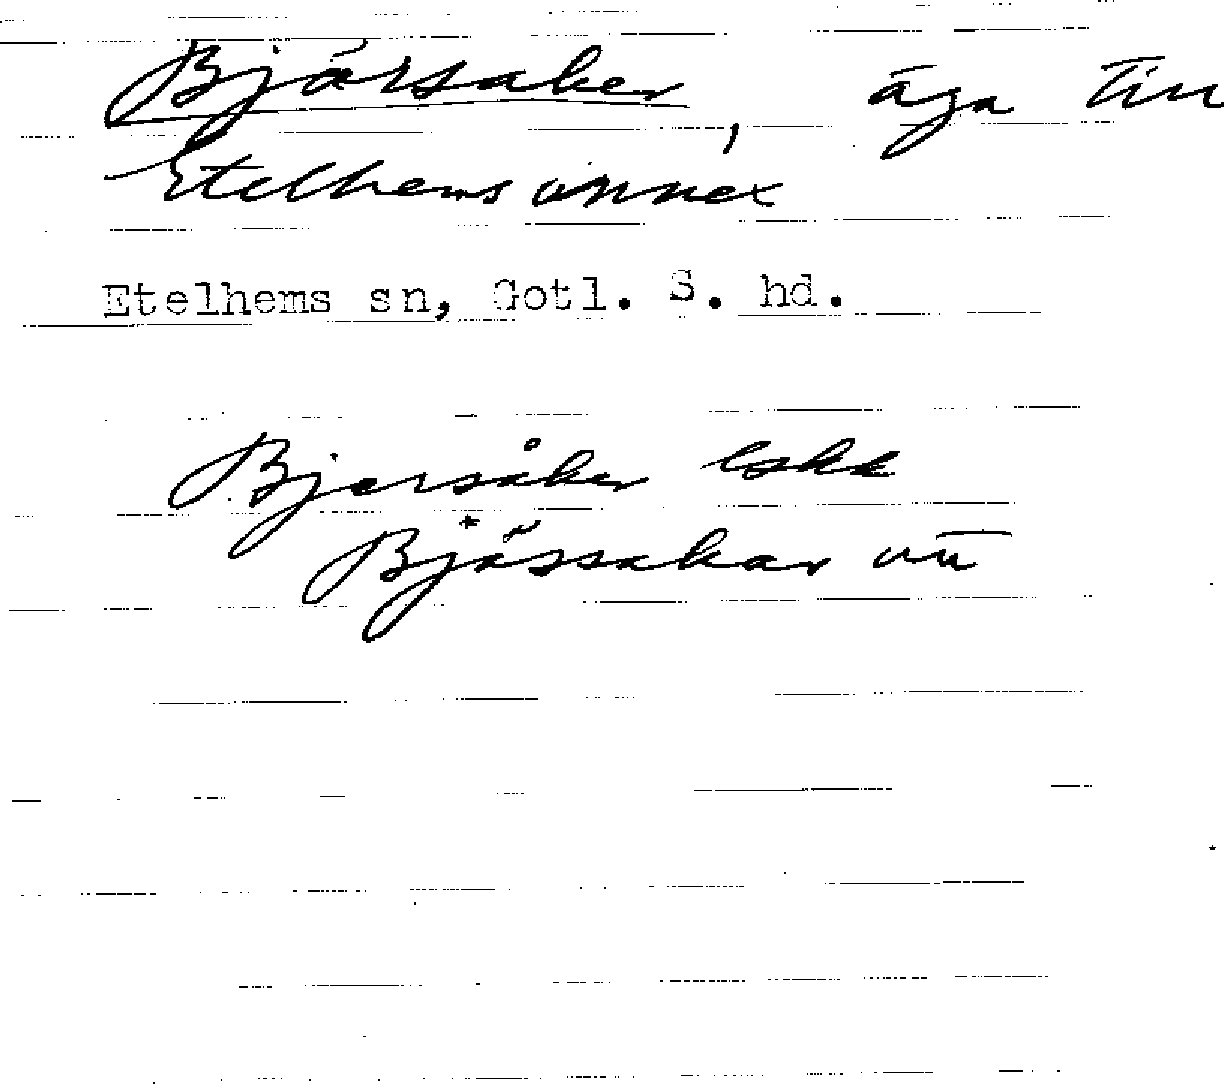 Bjärsaker, äga till
Etelhems annex
Etelhems sn, Gotl. S. hd.
Bjersåker eskk
Bjässakar